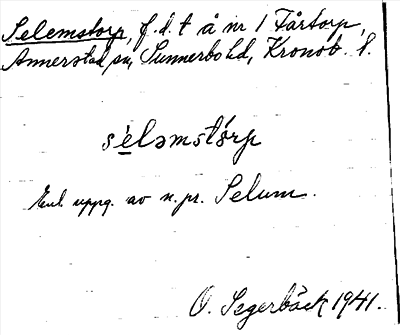 Selemstorp, f.d. t å nr 1 Fårtorp,
Annerstad sn, Sunnerbo hd, Kronob. l.
sèləmstórp
Enl. uppg. av n. pr. Selum.
O. Segerbäck 1941.